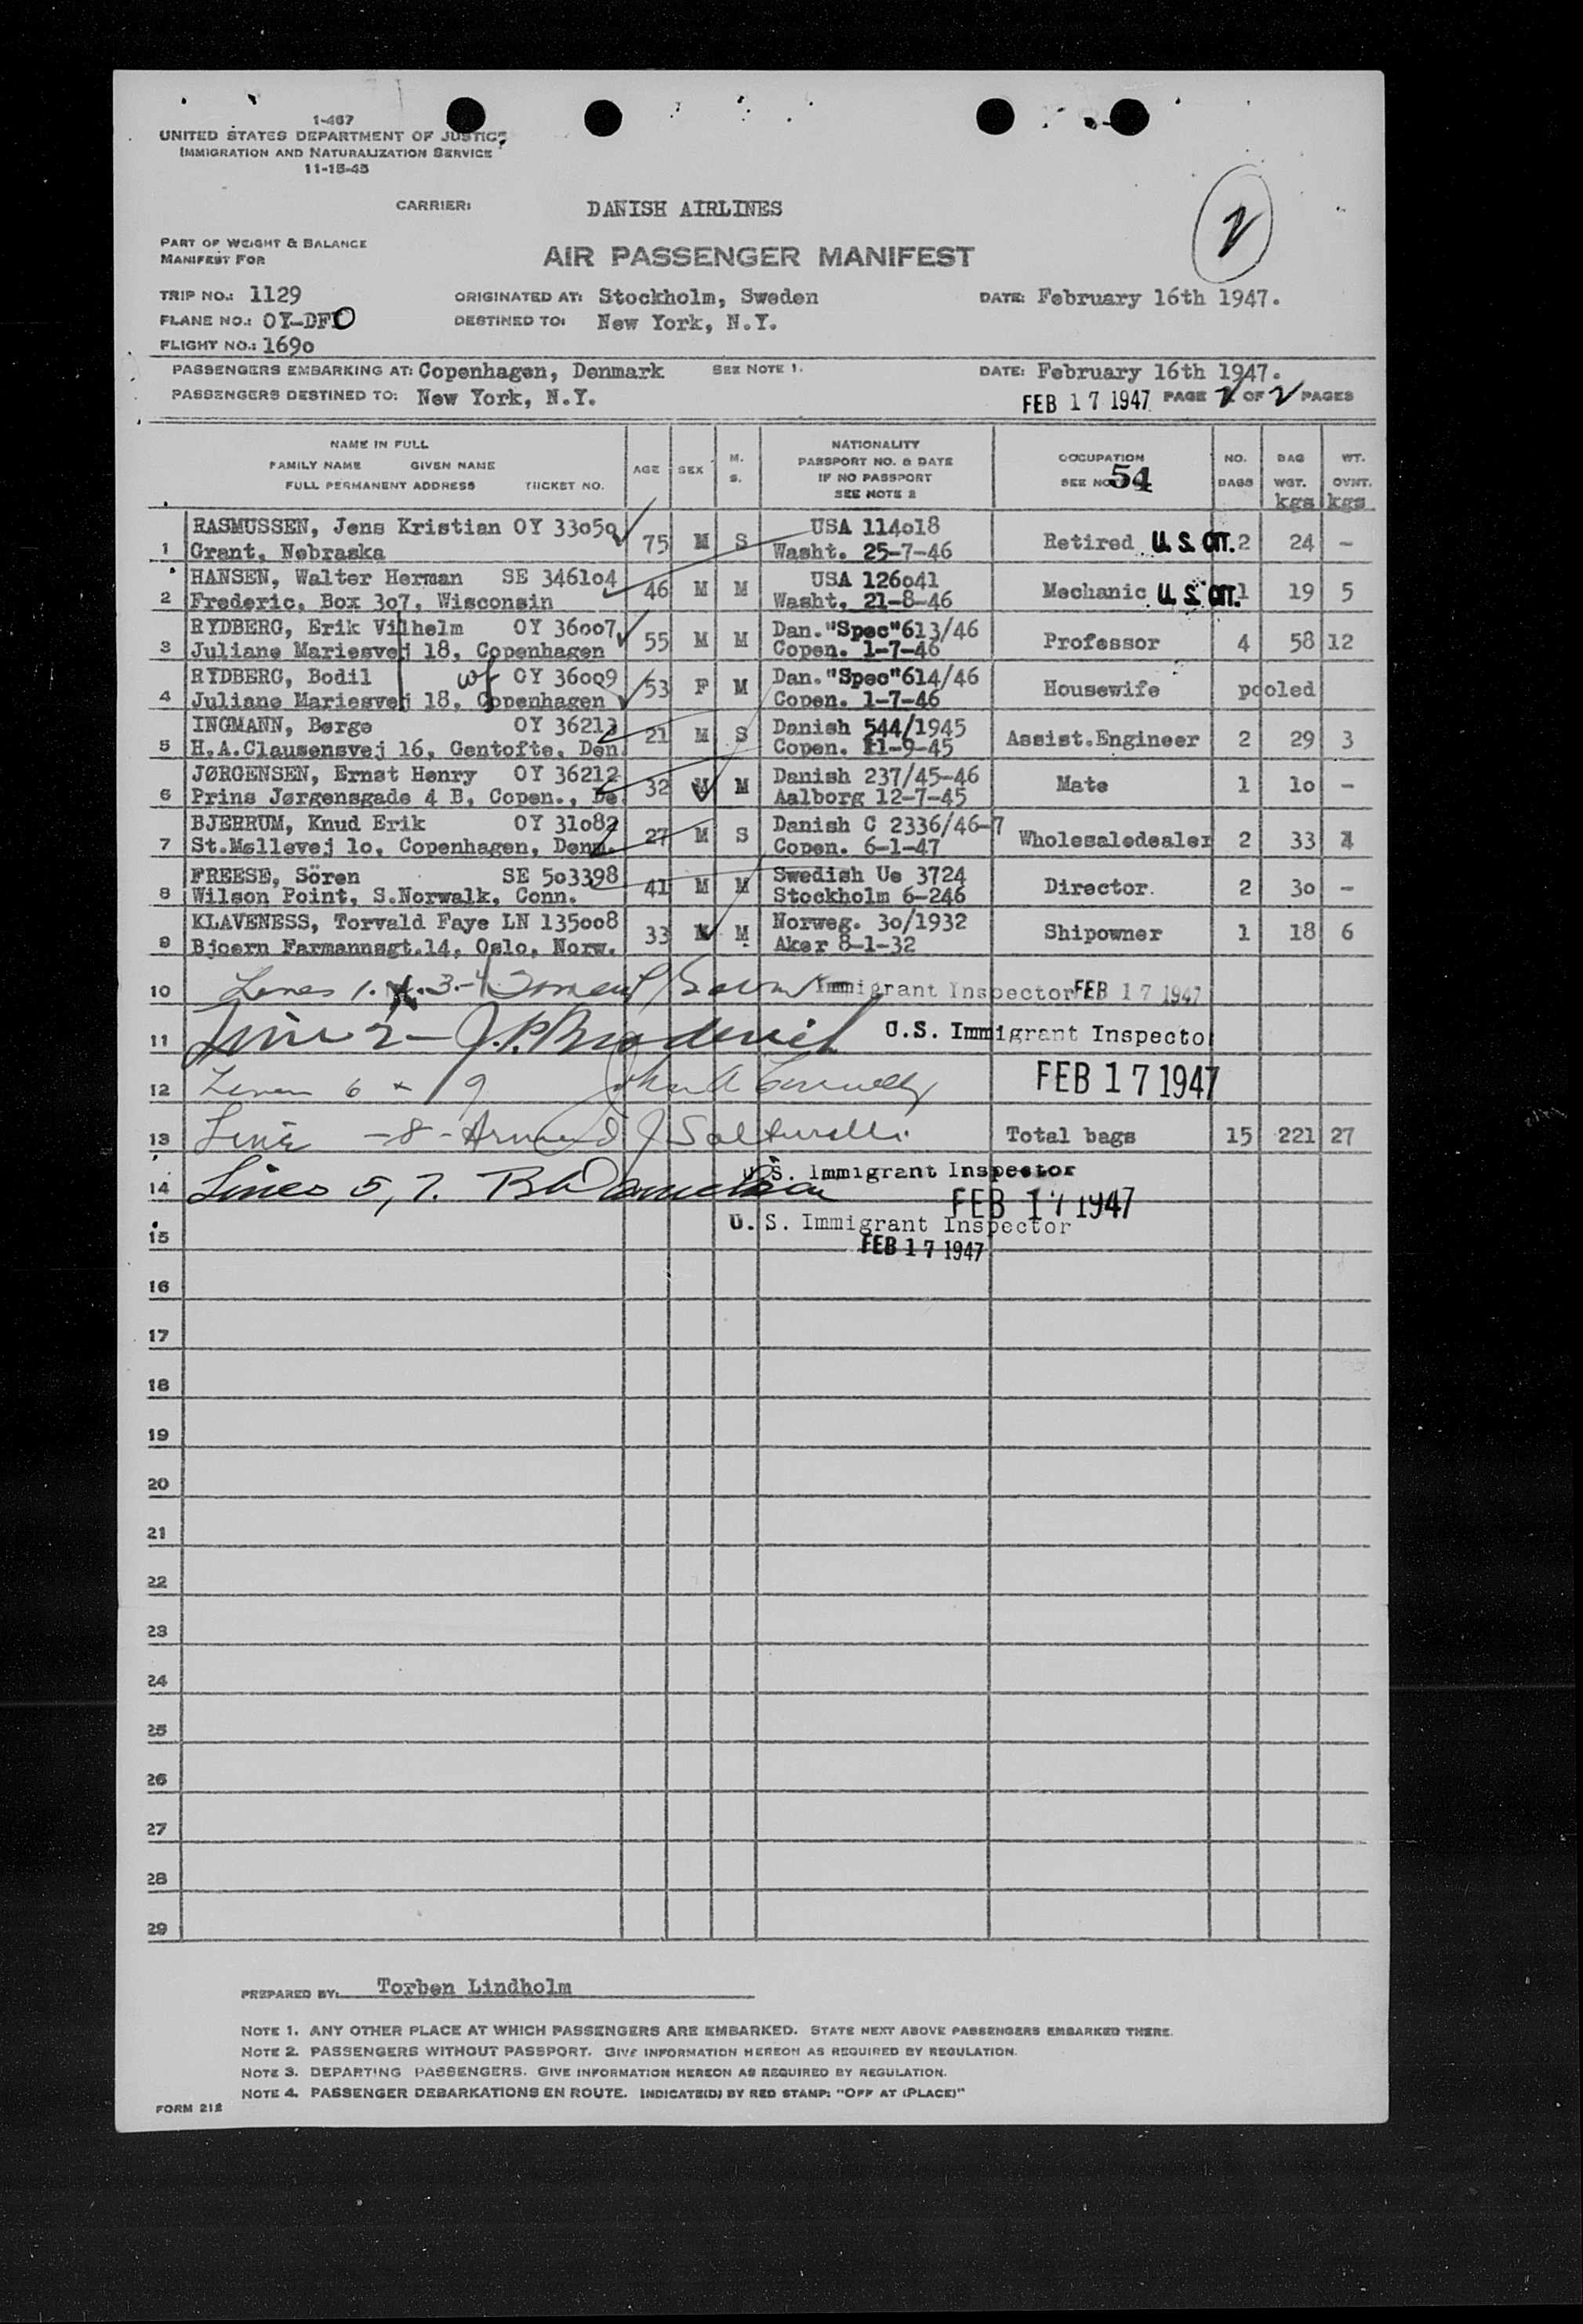 1-467
UNITED STATES DEPARTMENT OF JUSTICE
IMMIGRATION AND NATURALIZATION SERVICE
11-15-45
CARRIER: DANISH AIRLINES
2
PART OF WEIGHT & BALANCE
MANIFEST FOR
AIR PASSENGER MANIFEST
TRIP NO.: 1129 ORIGINATED AT: Stockholm, Sweden DATE: February 16th 1947.
PLANE NO.: OY-DFO DESTINED TO: New York, N.Y.
FLIGHT NO.: 169o
PASSENGERS EMBARKING AT: Copenhagen, Denmark SEE NOTE 1. DATE: February 16th 1947.
PASSENGERS DESTINED TO: New York, N.Y. FEB 17 1947 PAGE 2 OF 2 PAGES
NAME IN FULL NATIONALITY
FAMILY NAME GIVEN NAME AGE SEX M. S. PASSPORT NO. & DATE OCCUPATION NO. BAG WT.
FULL PERMANENT ADDRESS TICKET NO. IF NO PASSPORT SEE NO 54 BAGS WGT. OVNT.
SEE NOTE 2 kgs kgs
RASMUSSEN, Jens Kristian OY 33o5o USA 114o18
1 Grant, Nebraska 75 M S Washt. 25-7-46 Retired U.S. CIT. 2 24 -
HANSEN, Walter Herman SE 3461o4 USA 126o41
2 Frederic, Box 3o7, Wisconsin 46 M M Washt. 21-8-46 Mechanic U.S. CIT. 1 19 5
RYDBERG, Erik Vilhelm OY 36oo7 Dan."Spec"613/46
3 Juliane Mariesvej 18, Copenhagen 55 M M Copen. 1-7-46 Professor 4 58 12
RYDBERG, Bodil wf OY 36oo9 Dan."Spec"614/46
4 Juliane Mariesvej 18, Copenhagen 53 F M Copen. 1-7-46 Housewife pooled
INGMANN, Børge OY 36213 Danish 544/1945
5 H.A.Clausensvej 16, Gentofte, Den. 21 M S Copen. 11-9-45 Assist.Engineer 2 29 3
JØRGENSEN, Ernst Henry OY 36212 Danish 237/45-46
6 Prins Jørgensgade 4 B, Copen., De. 32 M M Aalborg 12-7-45 Mate 1 1o -
BJERRUM, Knud Erik OY 31o82 Danish C 2336/46-7
7 St.Møllevej 1o, Copenhagen, Denm. 27 M S Copen. 6-1-47 Wholesaledealer 2 33 4
FREESE, Sören SE 5o3398 Swedish Ue 3724
8 Wilson Point, S.Norwalk, Conn. 41 M M Stockholm 6-246 Director. 2 3o -
KLAVENESS, Torvald Faye LN 135oo8 Norweg. 3o/1932
9 Bjoern Farmannsgt.14, Oslo, Norw. 33 M M Aker 8-1-32 Shipowner 1 18 6
10 Lines 1. 3.-4 Immigrant Inspector FEB 17 1947
11 Line 2- J.P. Broderick U.S. Immigrant Inspecto
12 Lines 6 + 9 John A Connelly FEB 17 1947
13 Line -8- Armand J Salturelli Total bags 15 221 27
U.S. Immigrant Inspector
14 Lines 5, 7. FEB 17 1947
U. S. Immigrant Inspector
15 FEB 17 1947
16
17
18
19
20
21
22
23
24
25
26
27
28
29
PREPARED BY: Torben Lindholm
NOTE 1. ANY OTHER PLACE AT WHICH PASSENGERS ARE EMBARKED. STATE NEXT ABOVE PASSENGERS EMBARKED THERE.
NOTE 2. PASSENGERS WITHOUT PASSPORT. GIVE INFORMATION HEREON AS REQUIRED BY REGULATION.
NOTE 3. DEPARTING PASSENGERS. GIVE INFORMATION HEREON AS REQUIRED BY REGULATION.
NOTE 4. PASSENGER DEBARKATIONS EN ROUTE. INDICATE(D) BY RED STAMP: "OFF AT (PLACE)"
FORM 212